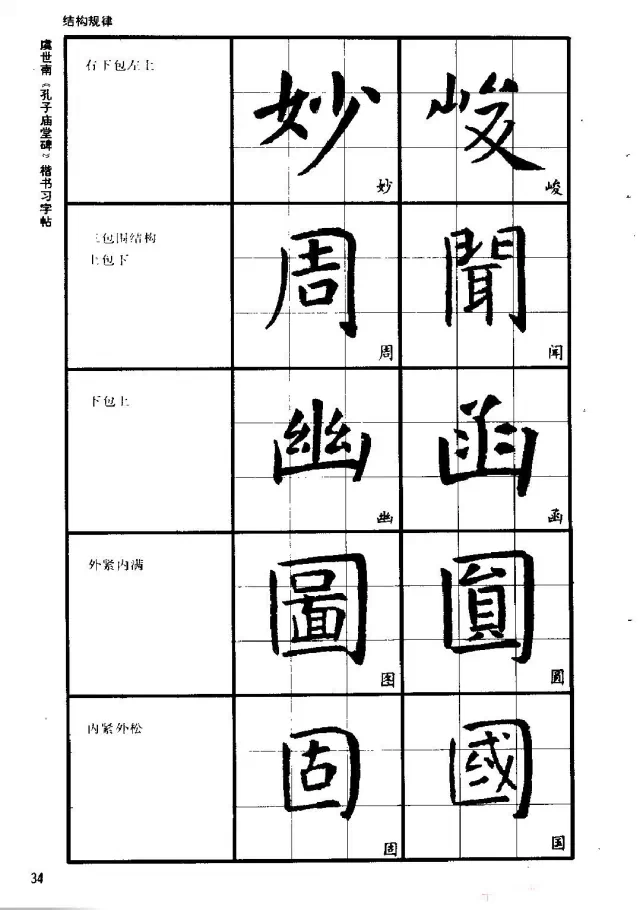 结构规律
虞世南《孔子庙堂碑》楷书习字帖
右下包左上
妙 峻
妙 峻
三包围结构
上包下
周 聞
周 闻
下包上
幽 函
幽 函
外紧内满
圖 圓
图 圆
内紧外松
固 國
固 国
34